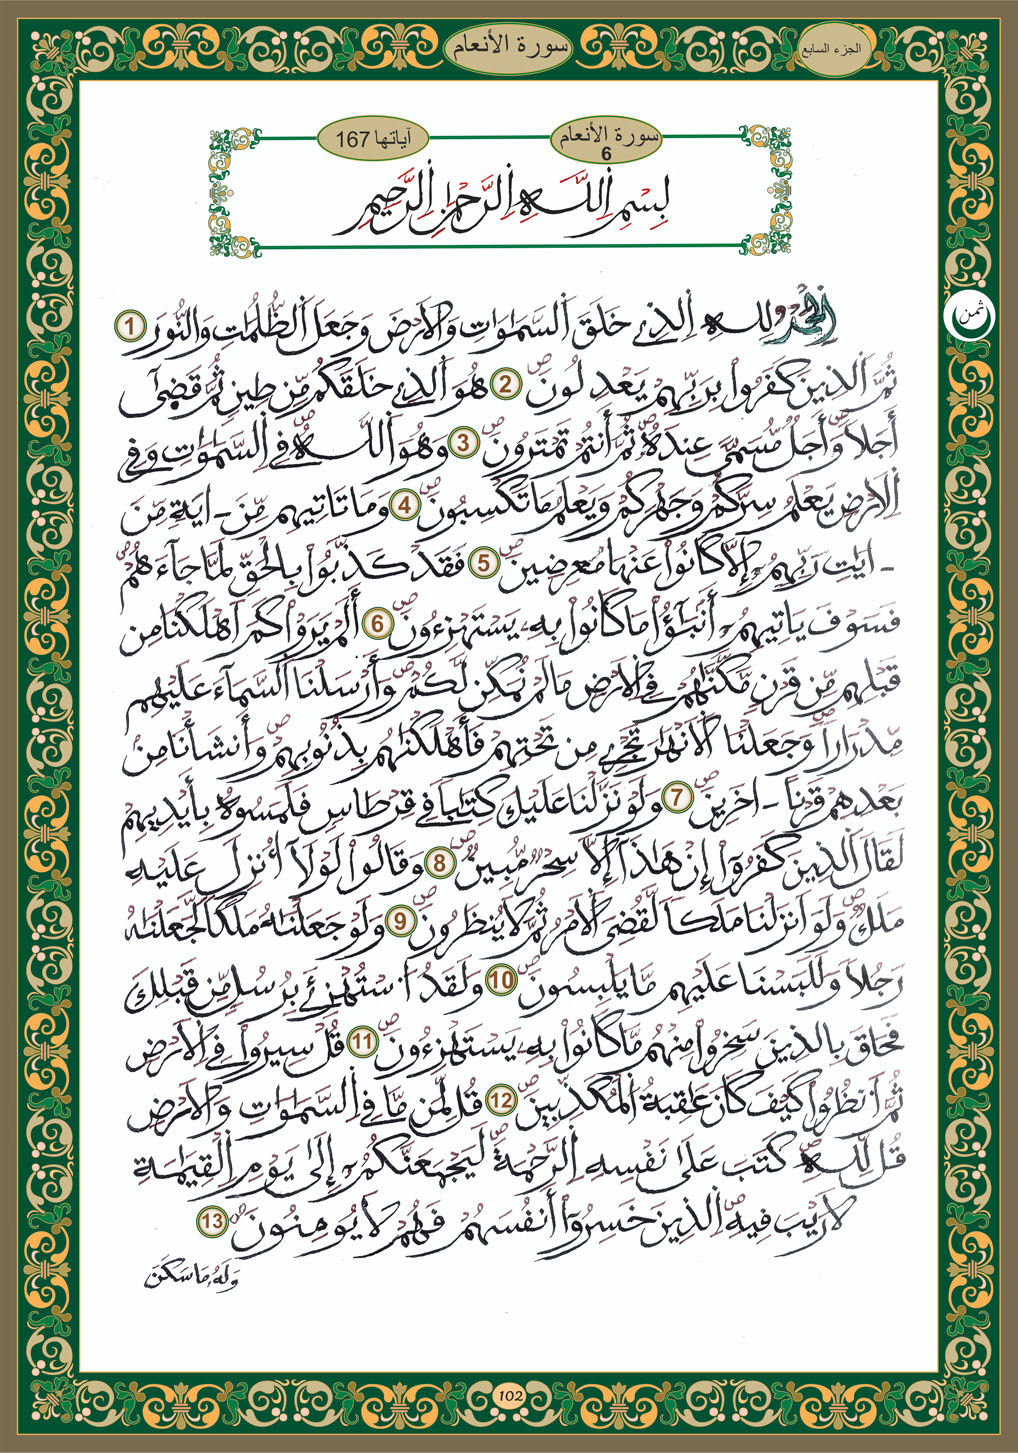 سورة الأنعام
الجزء السابع
سورة الأنعام
6
آياتها 167
بِسْمِ اِ۬للَّهِ اِ۬لرَّحْمَٰنِ اِ۬لرَّحِيمِ
ثمن
اَ۬لْحَمْدُ لِلهِ اِ۬لذِے خَلَقَ اَ۬لسَّمَٰوَٰتِ وَالَارْضَ وَجَعَلَ اَ۬لظُّلُمَٰتِ وَالنُّورَ 1
ثُمَّ اَ۬لذِينَ كَفَرُواْ بِرَبِّهِمْ يَعْدِلُونَۖ 2 هُوَ اَ۬لذِے خَلَقَكُم مِّن طِينٖ ثُمَّ قَضَىٰٓ
أَجَلاٗۖ وَأَجَلٞ مُّسَمًّى عِندَهُۥۖ ثُمَّ أَنتُمْ تَمْتَرُونَۖ 3 وَهُوَ اَ۬للَّهُ فِے اِ۬لسَّمَٰوَٰتِ وَفِے
اِ۬لَارْضِ يَعْلَمُ سِرَّكُمْ وَجَهْرَكُمْ وَيَعْلَمُ مَا تَكْسِبُونَۖ 4 وَمَا تَاتِيهِم مِّنَ اٰيَةٖ مِّنَ
اٰيَٰتِ رَبِّهِمُۥٓ إِلَّا كَانُواْ عَنْهَا مُعْرِضِينَۖ 5 فَقَدْ كَذَّبُواْ بِالْحَقِّ لَمَّا جَآءَهُمْۖ
فَسَوْفَ يَاتِيهِمُۥٓ أَنۢبَٰٓؤُاْ مَا كَانُواْ بِهِۦ يَسْتَهْزِءُونَۖ 6 أَلَمْ يَرَوْاْ كَمَ اَهْلَكْنَا مِن
قَبْلِهِم مِّن قَرْنٖ مَّكَّنَّٰهُمْ فِے اِ۬لَارْضِ مَا لَمْ نُمَكِّن لَّكُمْۖ وَأَرْسَلْنَا اَ۬لسَّمَآءَ عَلَيْهِم
مِّدْرَاراٗۖ وَجَعَلْنَا اَ۬لَانْهَٰرَ تَجْرِے مِن تَحْتِهِمْ فَأَهْلَكْنَٰهُم بِذُنُوبِهِمْۖ وَأَنشَأْنَا مِنۢ
بَعْدِهِمْ قَرْناً اٰخَرِينَۖ 7 وَلَوْ نَزَّلْنَا عَلَيْكَ كِتَٰباٗ فِے قِرْطَاسٖ فَلَمَسُوهُ بِأَيْدِيهِمْ
لَقَالَ اَ۬لذِينَ كَفَرُوٓاْ إِنْ هَٰذَآ إِلَّا سِحْرٞ مُّبِينٞۖ 8 وَقَالُواْ لَوْلَآ أُنزِلَ عَلَيْهِ
مَلَكٞۖ وَلَوَ اَنزَلْنَا مَلَكاٗ لَّقُضِيَ اَ۬لَامْرُ ثُمَّ لَا يُنظَرُونَۖ 9 وَلَوْ جَعَلْنَٰهُ مَلَكاٗ لَّجَعَلْنَٰهُ
رَجُلاٗ وَلَلَبَسْنَا عَلَيْهِم مَّا يَلْبِسُونَۖ 10 وَلَقَدُ اُ۟سْتُهْزِئَ بِرُسُلٖ مِّن قَبْلِكَ
فَحَاقَ بِالذِينَ سَخِرُواْ مِنْهُم مَّا كَانُواْ بِهِۦ يَسْتَهْزِءُونَۖ 11 قُلْ سِيرُواْ فِے اِ۬لَارْضِ
ثُمَّ اَ۟نظُرُواْ كَيْفَ كَانَ عَٰقِبَةُ اُ۬لْمُكَذِّبِينَۖ 12 قُل لِّمَن مَّا فِے اِ۬لسَّمَٰوَٰتِ وَالَارْضِ
قُل لِّلهِۖ كَتَبَ عَلَىٰ نَفْسِهِ اِ۬لرَّحْمَةَۖ لَيَجْمَعَنَّكُمُۥٓ إِلَىٰ يَوْمِ اِ۬لْقِيَٰمَةِ
لَا رَيْبَ فِيهِۖ اِ۬لذِينَ خَسِرُوٓاْ أَنفُسَهُمْ فَهُمْ لَا يُومِنُونَۖ 13
وَلَهُۥ مَا سَكَنَ
102